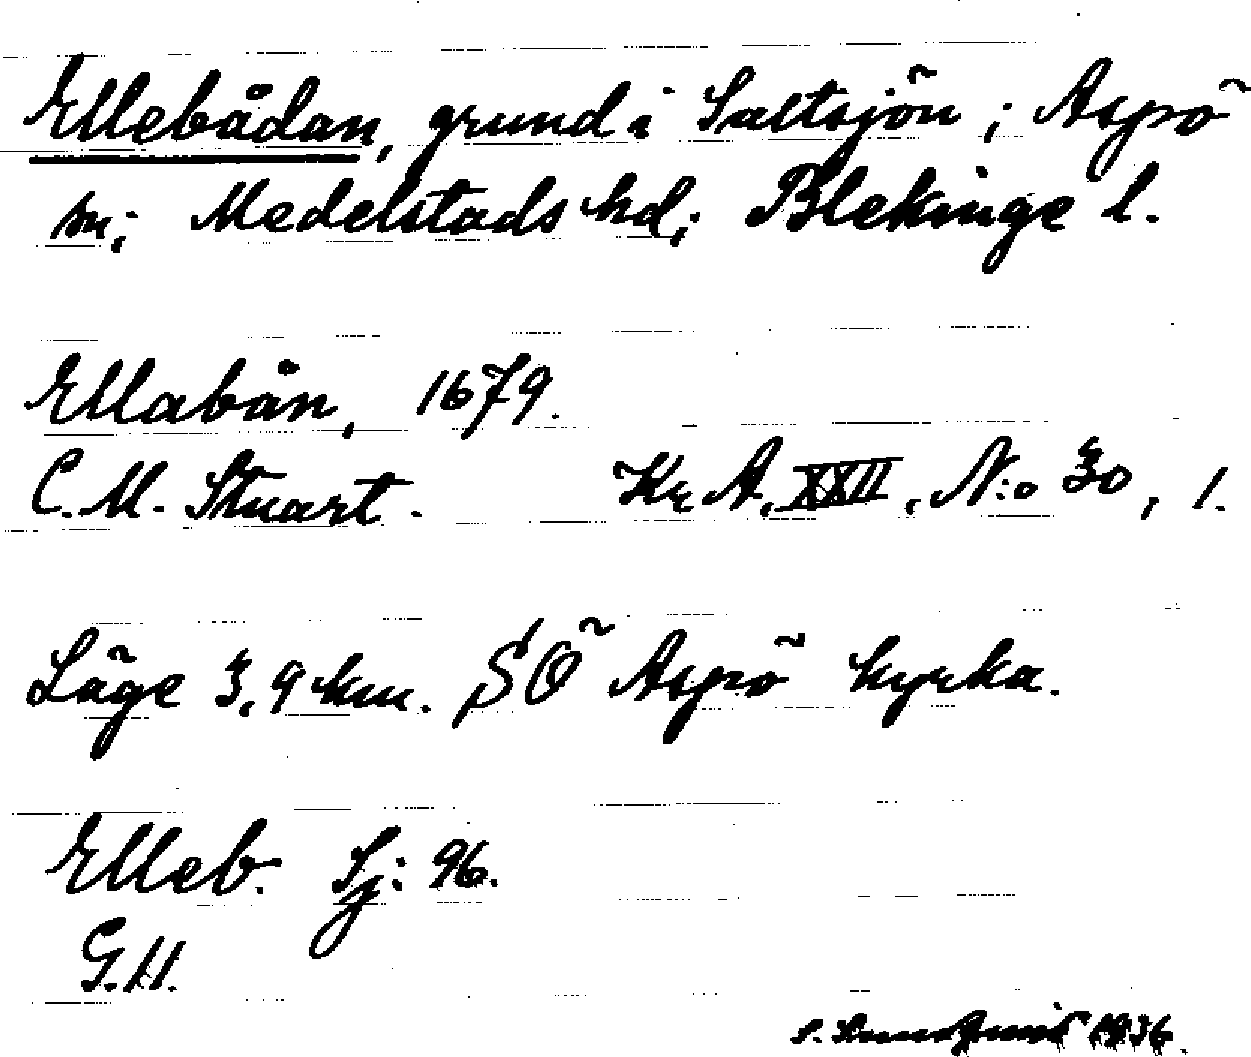 Ellebådan, grund i Saltsjön; Aspö
sn; Medelstads hd; Blekinge l.
Ellabån, 1679.
C. M. Stuart. Kr. A. XXII, N:o 30, 1.
Läge 3,9 km. SÖ Aspö kyrka.
Elleb. Sj: 96.
G.H.
1936.